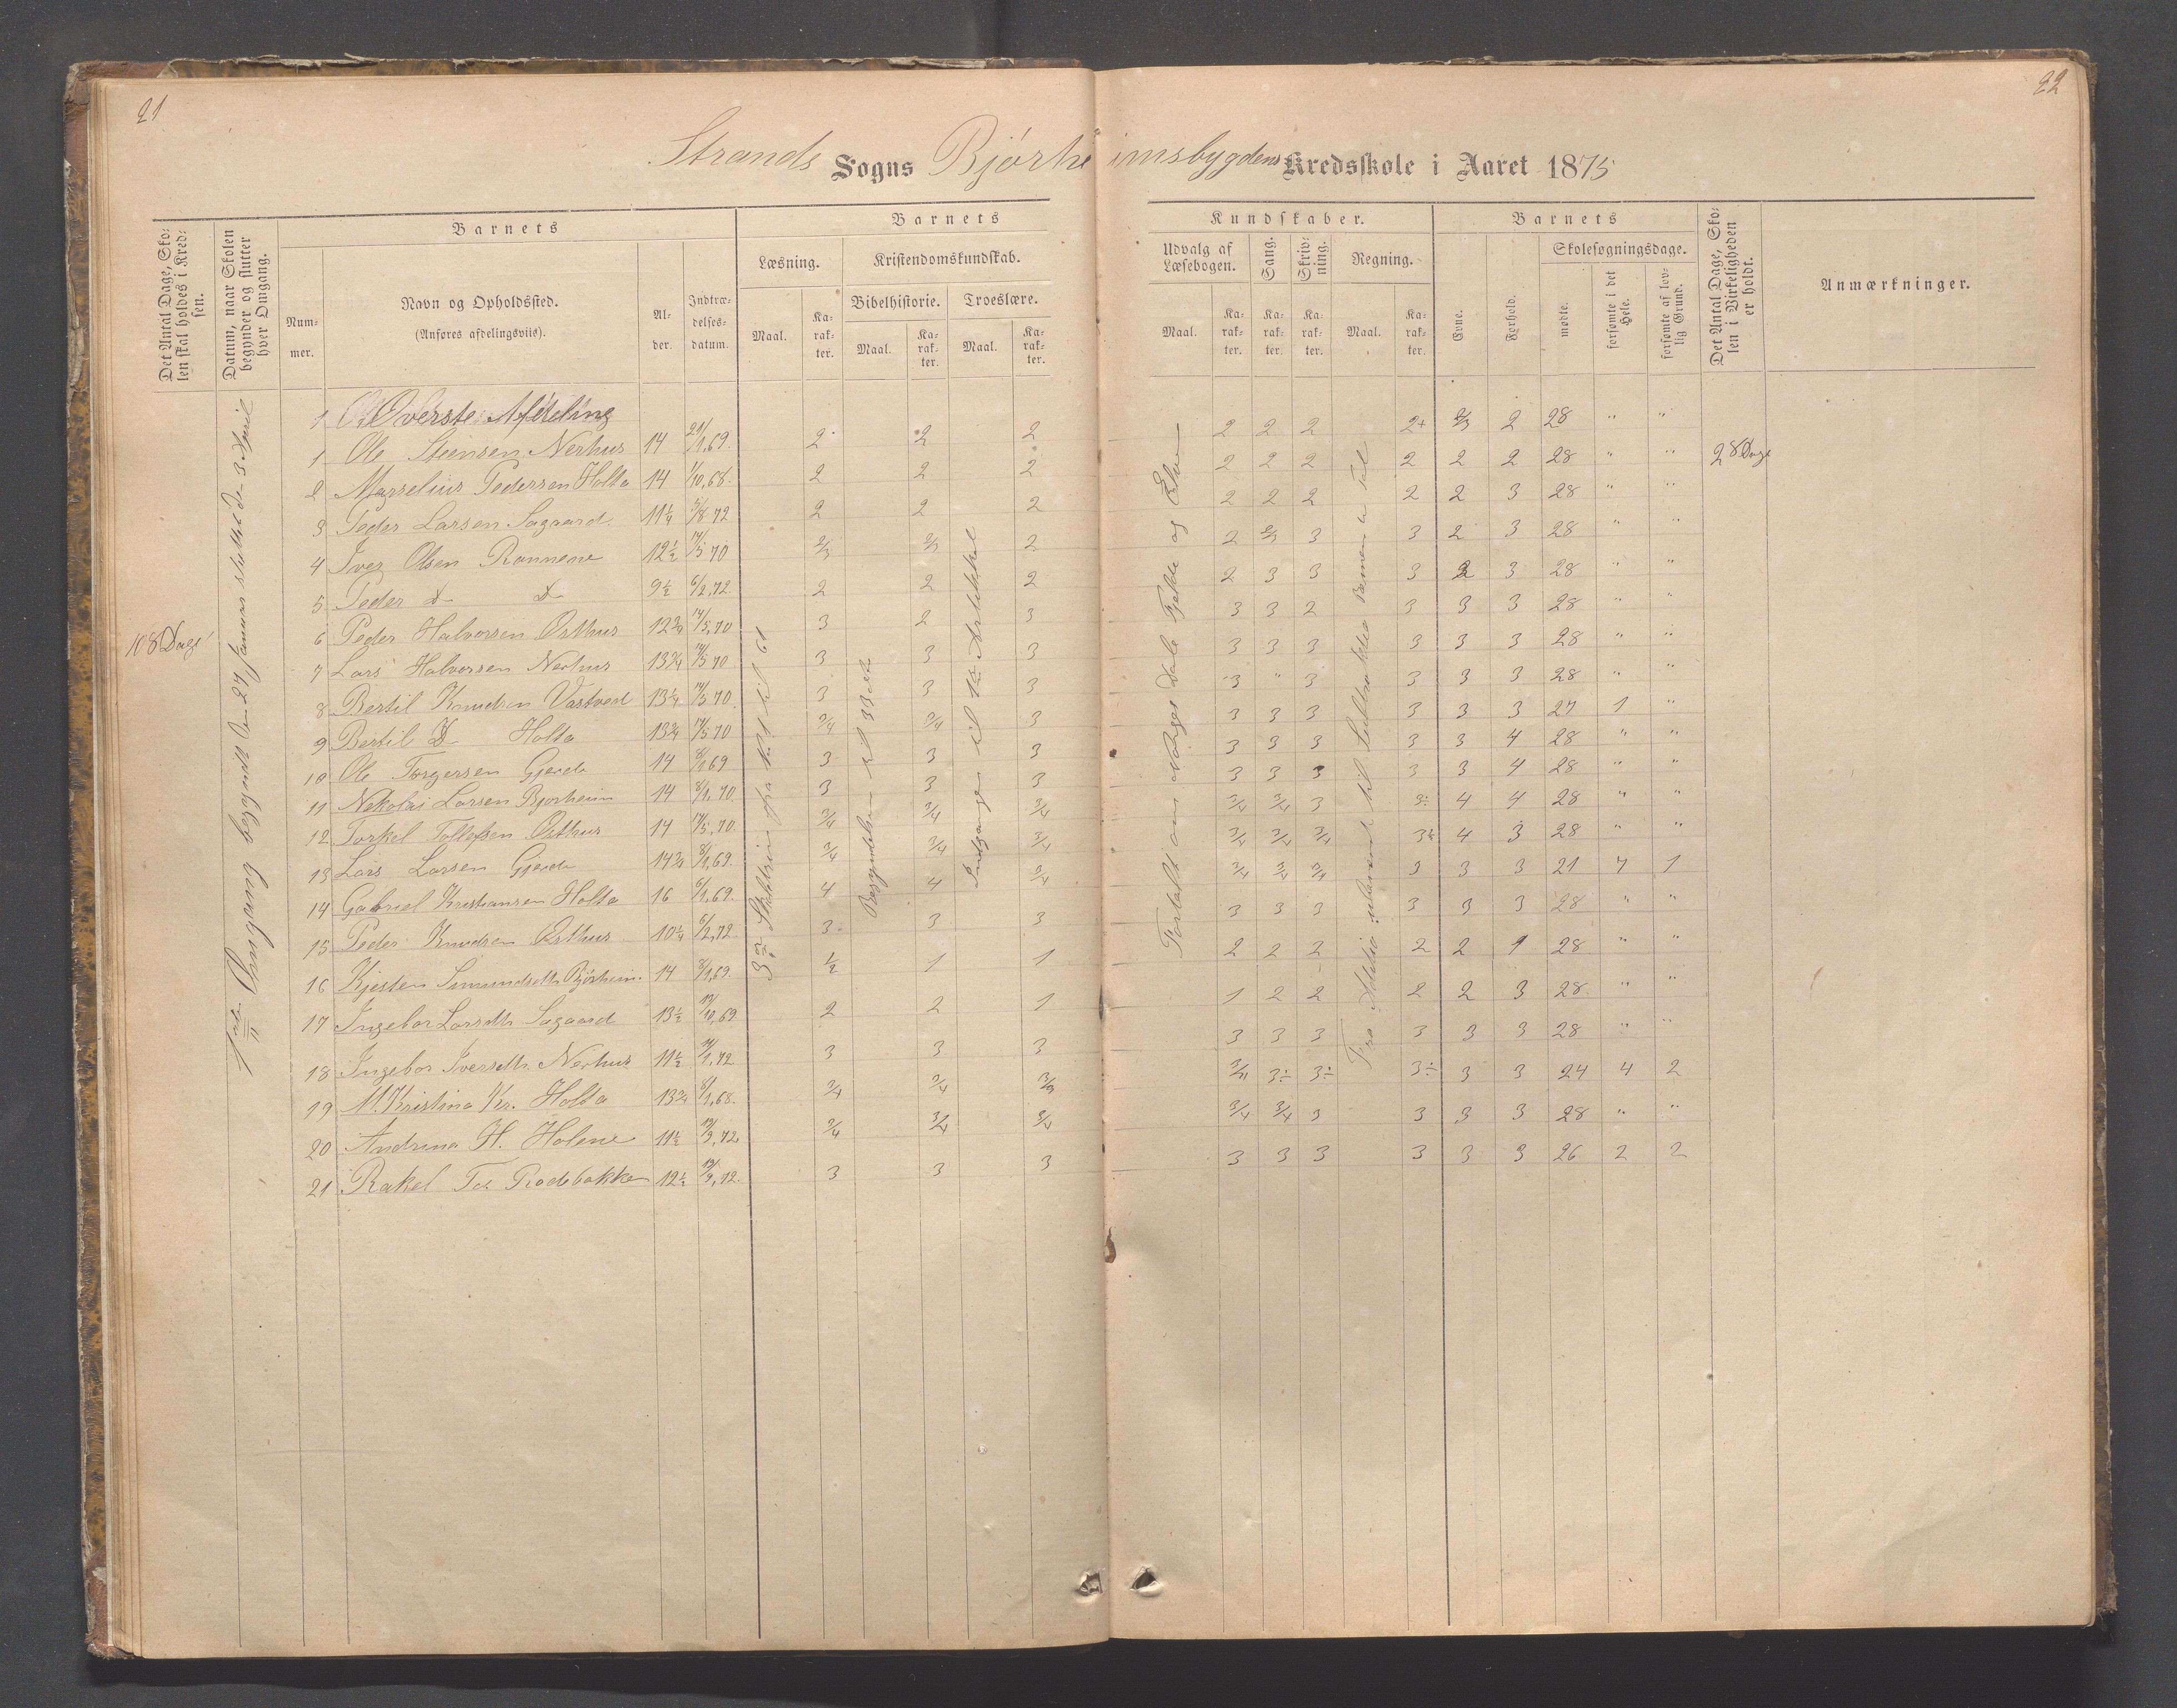 21
22
Strands Sogns Bjørheimsbygdens Kredsskole i Aaret 1875
Det Antal Dage, Skolen skal holdes i Kredsen.
Datum, naar Skolen begynder og slutter hver Omgang.
Barnets
Nummer.
Navn og Opholdssted.
(Anføres afdelingsviis).
Alder.
Indtrædelsesdatum.
Barnets
Læsning.
Kristendomskundskab.
Bibelhistorie.
Troeslære.
Maal.
Karakter.
Maal.
Karakter.
Maal.
Karakter.
Kundskaber.
Udvalg af Læsebogen.
Sang.
Skrivning.
Regning.
Maal.
Karakter.
Karakter.
Karakter.
Maal.
Karakter.
Barnets
Evne.
Forhold.
Skolesøgningsdage.
mødte.
forsømte i det Hele.
forsømte af lovlig Grund.
Det Antal Dage, Skolen i Virkeligheden er holdt.
Anmærkninger.
108 Dage
Omgang begyndt den 27 Januar sluttet den 3 April
Øverste Afdeling
1 Ole Steensen Nerhus 14 21/1,69. 2 2 2 2 2 2 2+ 2/3 2 28 " "
2 Marselius Pedersen Holta 14 1/10,68. 2 2 2 2 2 2 2 2 2 28 " " 28 Dage
3 Peder Larsen Sagaard 11 1/4 5/8 72 2 2 2 2 2 2 2 2 3 28 " "
4 Iver Olsen Rannene 12 1/2 14/5 70 2/3 2/3 2 2 2/3 3 3 2 3 28 " "
5 Peder D D 9 1/2 6/2,72. 2 2 2 2 3 3 3 2 3 28 " "
6 Peder Halvorsen Østhus 12 3/4 14/5,70 3 2 3 3 3 2 3 3 3 28 " "
7 Lars Halvorsen Nerhus 13 3/4 14/5 70 3 3 3 3 3 3 3 3 3 28 " "
8 Bertil Knudsen Vastveit 13 1/4 14/5 70. 3 3 3 3 " 3 3 3 3 28 " "
9 Bertil D Holta 13 3/4 14/5 70 3/4 3/4 3 3 3 3 3 3 3 27 1 "
10 Ole Torgersen Gjerde 14 8/1 69 3 3 3 3 3 3 3 3 4 28 " "
11 Nekolai Larsen Bjørheim 14 8/1, 70 3 3 3 3 3 3 3 3 4 28 " "
12 Torkel Tollefsen Østhus 14 14/5,70. 3/4 3/4 3/4 3/4 3/4 3 3÷ 4 4 28 " "
13 Lars Larsen Gjerde 14 3/4 8/1,69. 3/4 3/4 3/4 3/4 3/4 3/4 3÷ 4 3 28 " "
14 Gabriel Kristiansen Holta 16 8/1,69. 4 4 3/4 3/4 3/4 3/4 3 3 3 21 7 1
15 Peder Knudsen Østhus 10 1/4 6/2,72 3 3 3 3 3 3 3 3 3 28 " "
16 Kjesten Simundsdtr. Bjørheim. 14 8/1,69. 1/2 1 1 2 2 2 2 2 1 28 " "
17 Ingebor Larsdtr Sagaard 13 1/2 13/10,69 2 2 1 1 2 2 2 2 3 28 " "
18 Ingebor Iversdtr. Nerhus 11 1/2 11/1,72 3 3 3 3 3 3 3 3 3 28 " "
19 M. Kristina Kr. Holta 13 3/4 8/1,68. 3/4 3/4 3/3 3/4 3÷ 3÷ 3÷ 3 3 24 4 2
20 Andrina H. Holene 11 1/2 13/3,72 3/4 3/4 3/4 3/4 3/4 3 3 3 3 28 " "
21 Rakel Tor. Rodebakke 12 1/2 13/3,72. 3 3 3 3 3 3 3 3 3 26 2 2
Begyndelsen til 33
Indgangen til 1ste Artikkel
Fortalt om Norges Dale Fjelde og Elve